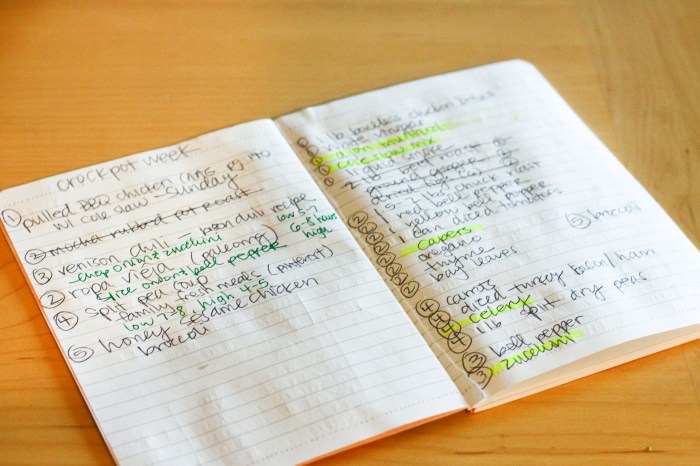 crockpot week
① pulled BBQ chicken
w/ cole slaw - Sunday
② mocha rubbed pot roast
③ venison chili - chili recipe
chop onion & zucchini low 5-7
② ropa vieja (paleomg) 6-8 hours
slice onion & bell pepper high
④ split pea soup
family fresh meals (pinterest)
low 7-8, high 4-5
⑤ honey sesame chicken
broccoli
lb boneless chicken breast
white vinegar
cole slaw mix
liquid smoke
chuck roast
1 red bell pepper
1 yellow bell pepper
1 can diced tomatoes
capers
oregano
thyme
bay leaves
⑤ broccoli
④ carrot
④ diced turkey bacon/ham
④ celery
④ 1 lb split dry peas
③ bell pepper
③ zucchini